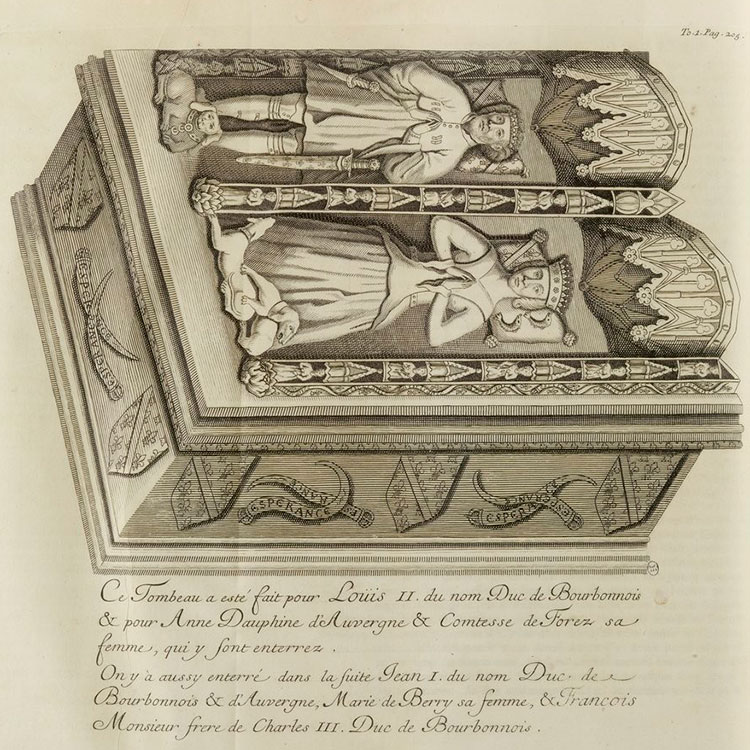 To.1.Pag.205.
ESPERANCE
ESPERANCE
ESPERANCE
Ce Tombeau a esté fait pour Loüis II. du nom Duc de Bourbonnois
& pour Anne Dauphine d'Auvergne & Comtesse de Forez sa
femme, qui y sont enterrez.
On y à aussy enterré dans la suite Jean I. du nom Duc de
Bourbonnois & d'Auvergne, Marie de Berry sa femme, & François
Monsieur frere de Charles III. Duc de Bourbonnois.